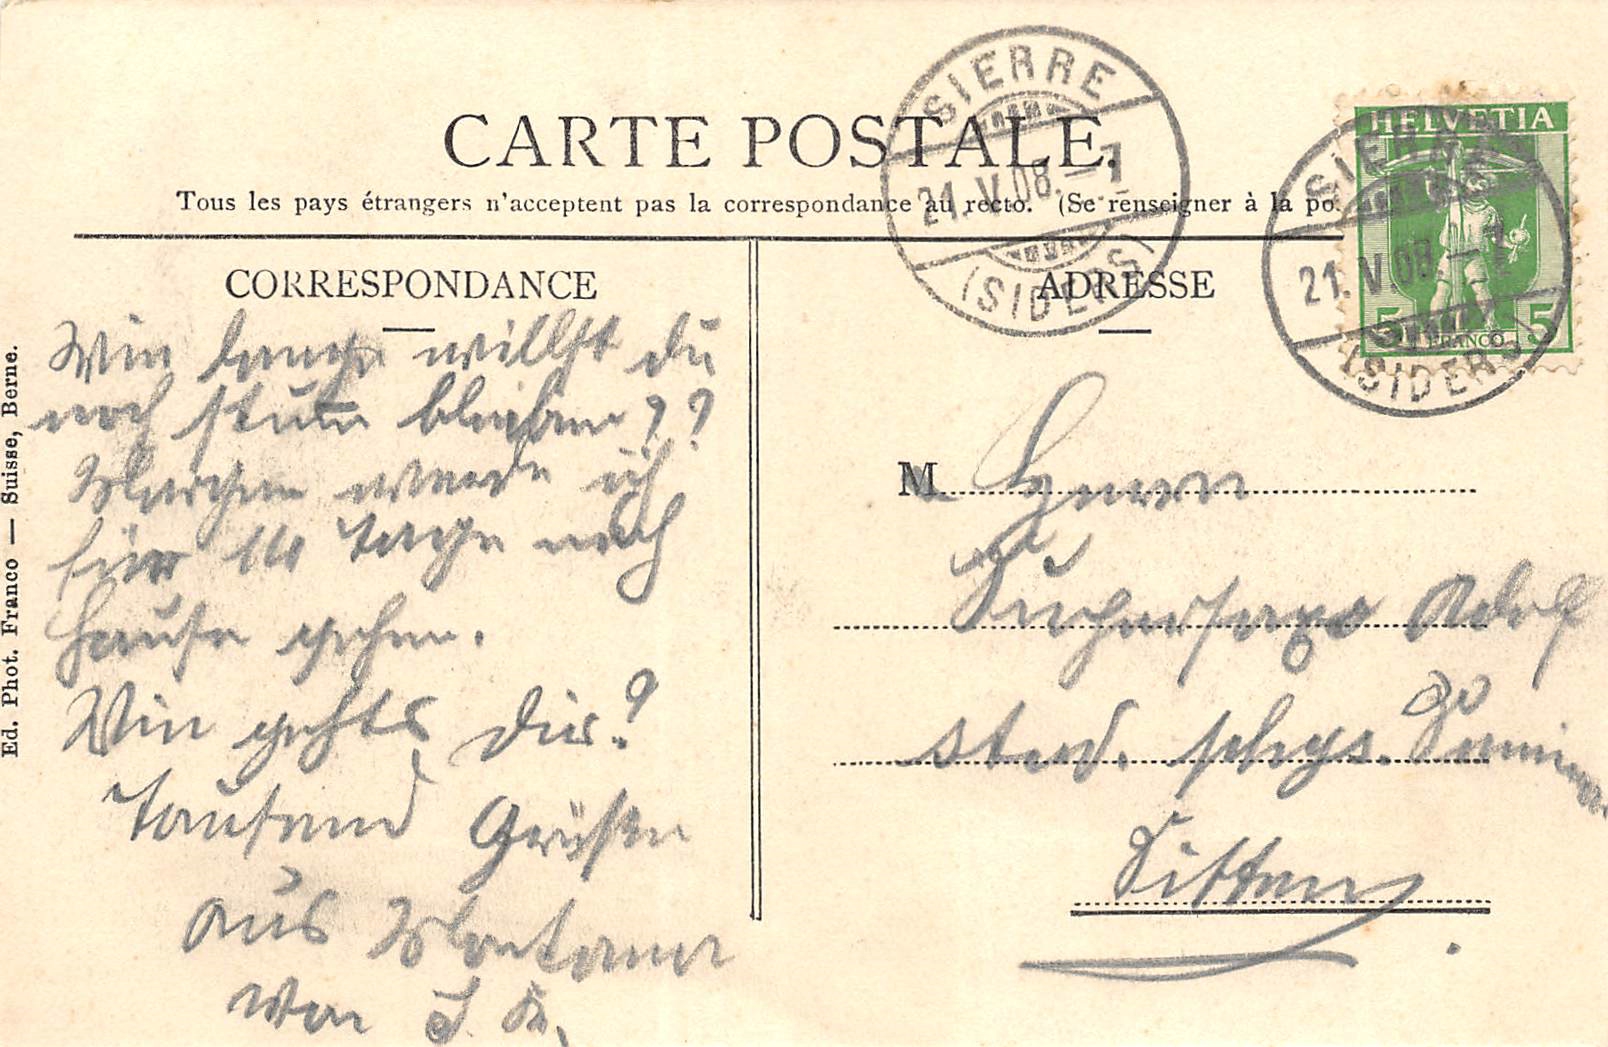 CARTE POSTALE.
Tous les pays étrangers n'acceptent pas la correspondance au recto. (Se renseigner à la po
CORRESPONDANCE
Wie lange willst du
noch stum bleiben??
Morgen werde ich
für 14 Tage nach
Hause gehen.
Wie gehts dir?
Tausend Grüße
aus Montana
von
Ed. Phot. Franco — Suisse, Berne.
ADRESSE
M Herrn
Supersaxo Adolf
stud. phys.
Sitten
SIERRE
21.V.08.–7
(SIDERS)
HELVETIA
5 FRANCO 5
SIERRE
21.V.08.–7
(SIDERS)